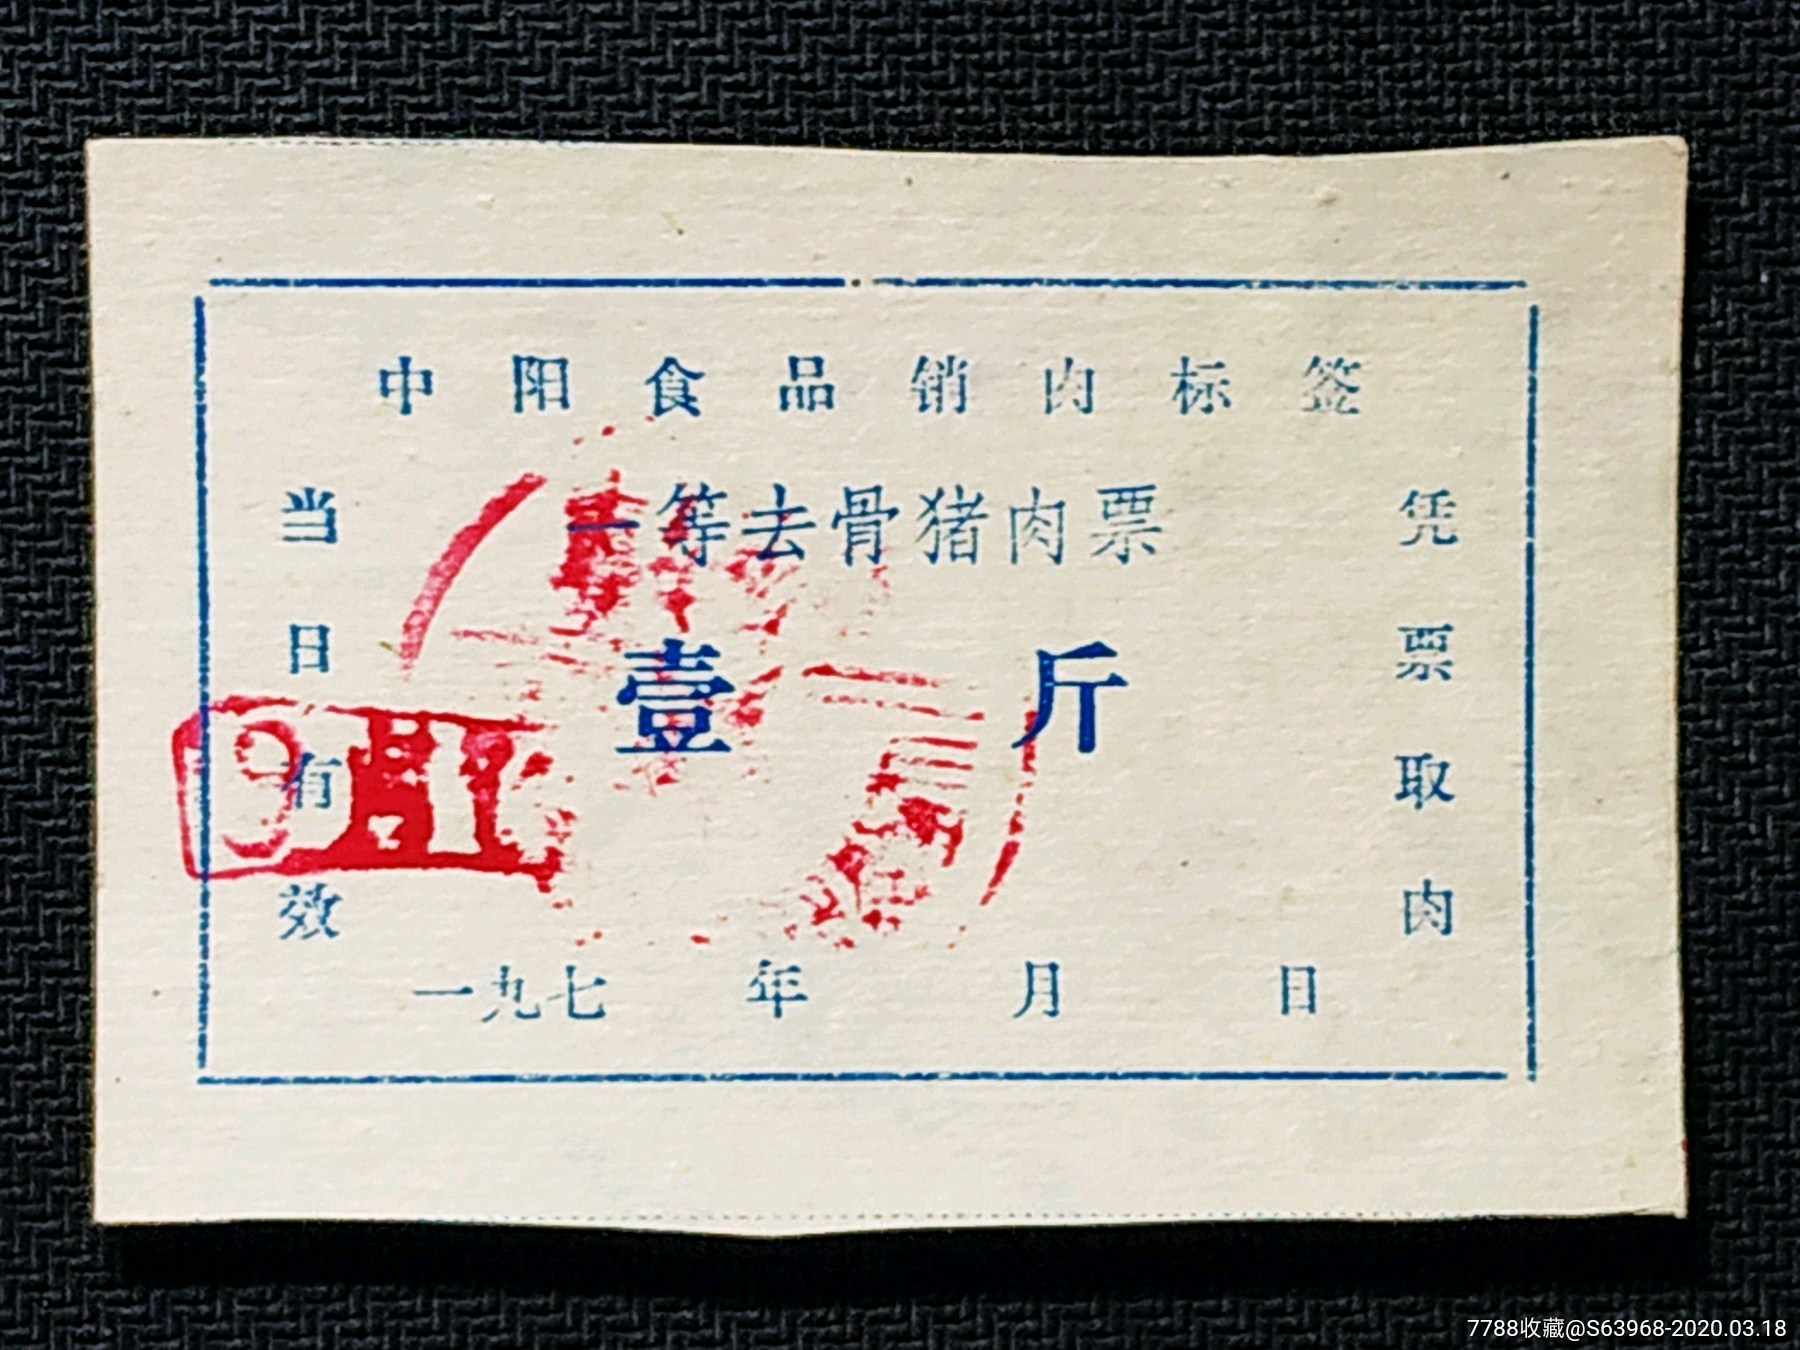 中阳食品销肉标签
一等去骨猪肉票
壹斤
当日有效
凭票取肉
一九七 年 月 日
7788收藏@S63968-2020.03.18